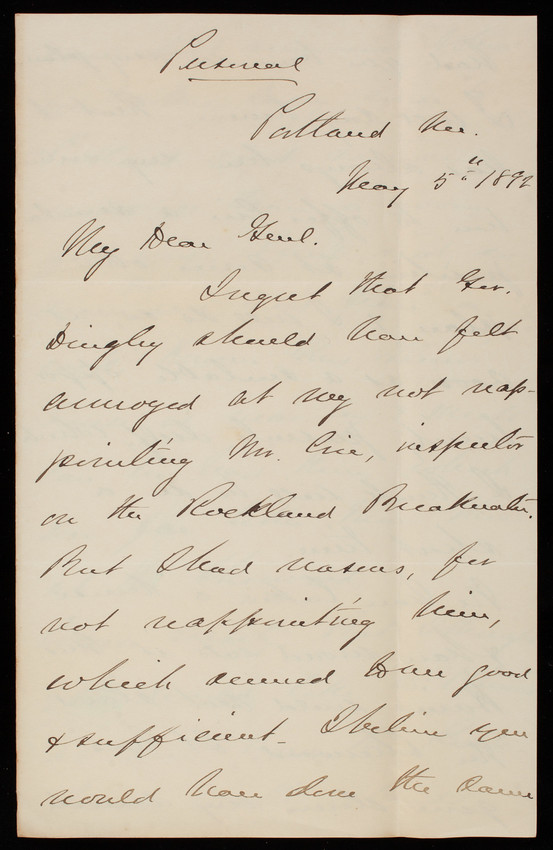 Personal
Portland Me.
May 5th 1892
My Dear Genl.
I regret that Gov.
Dingley should have felt
annoyed at my not reap-
pointing Mr. Crie, inspector
on the Rockland Breakwater.
But I had reasons, for
not reappointing him,
which seemed to me good
& sufficient - I believe you
would have done the same